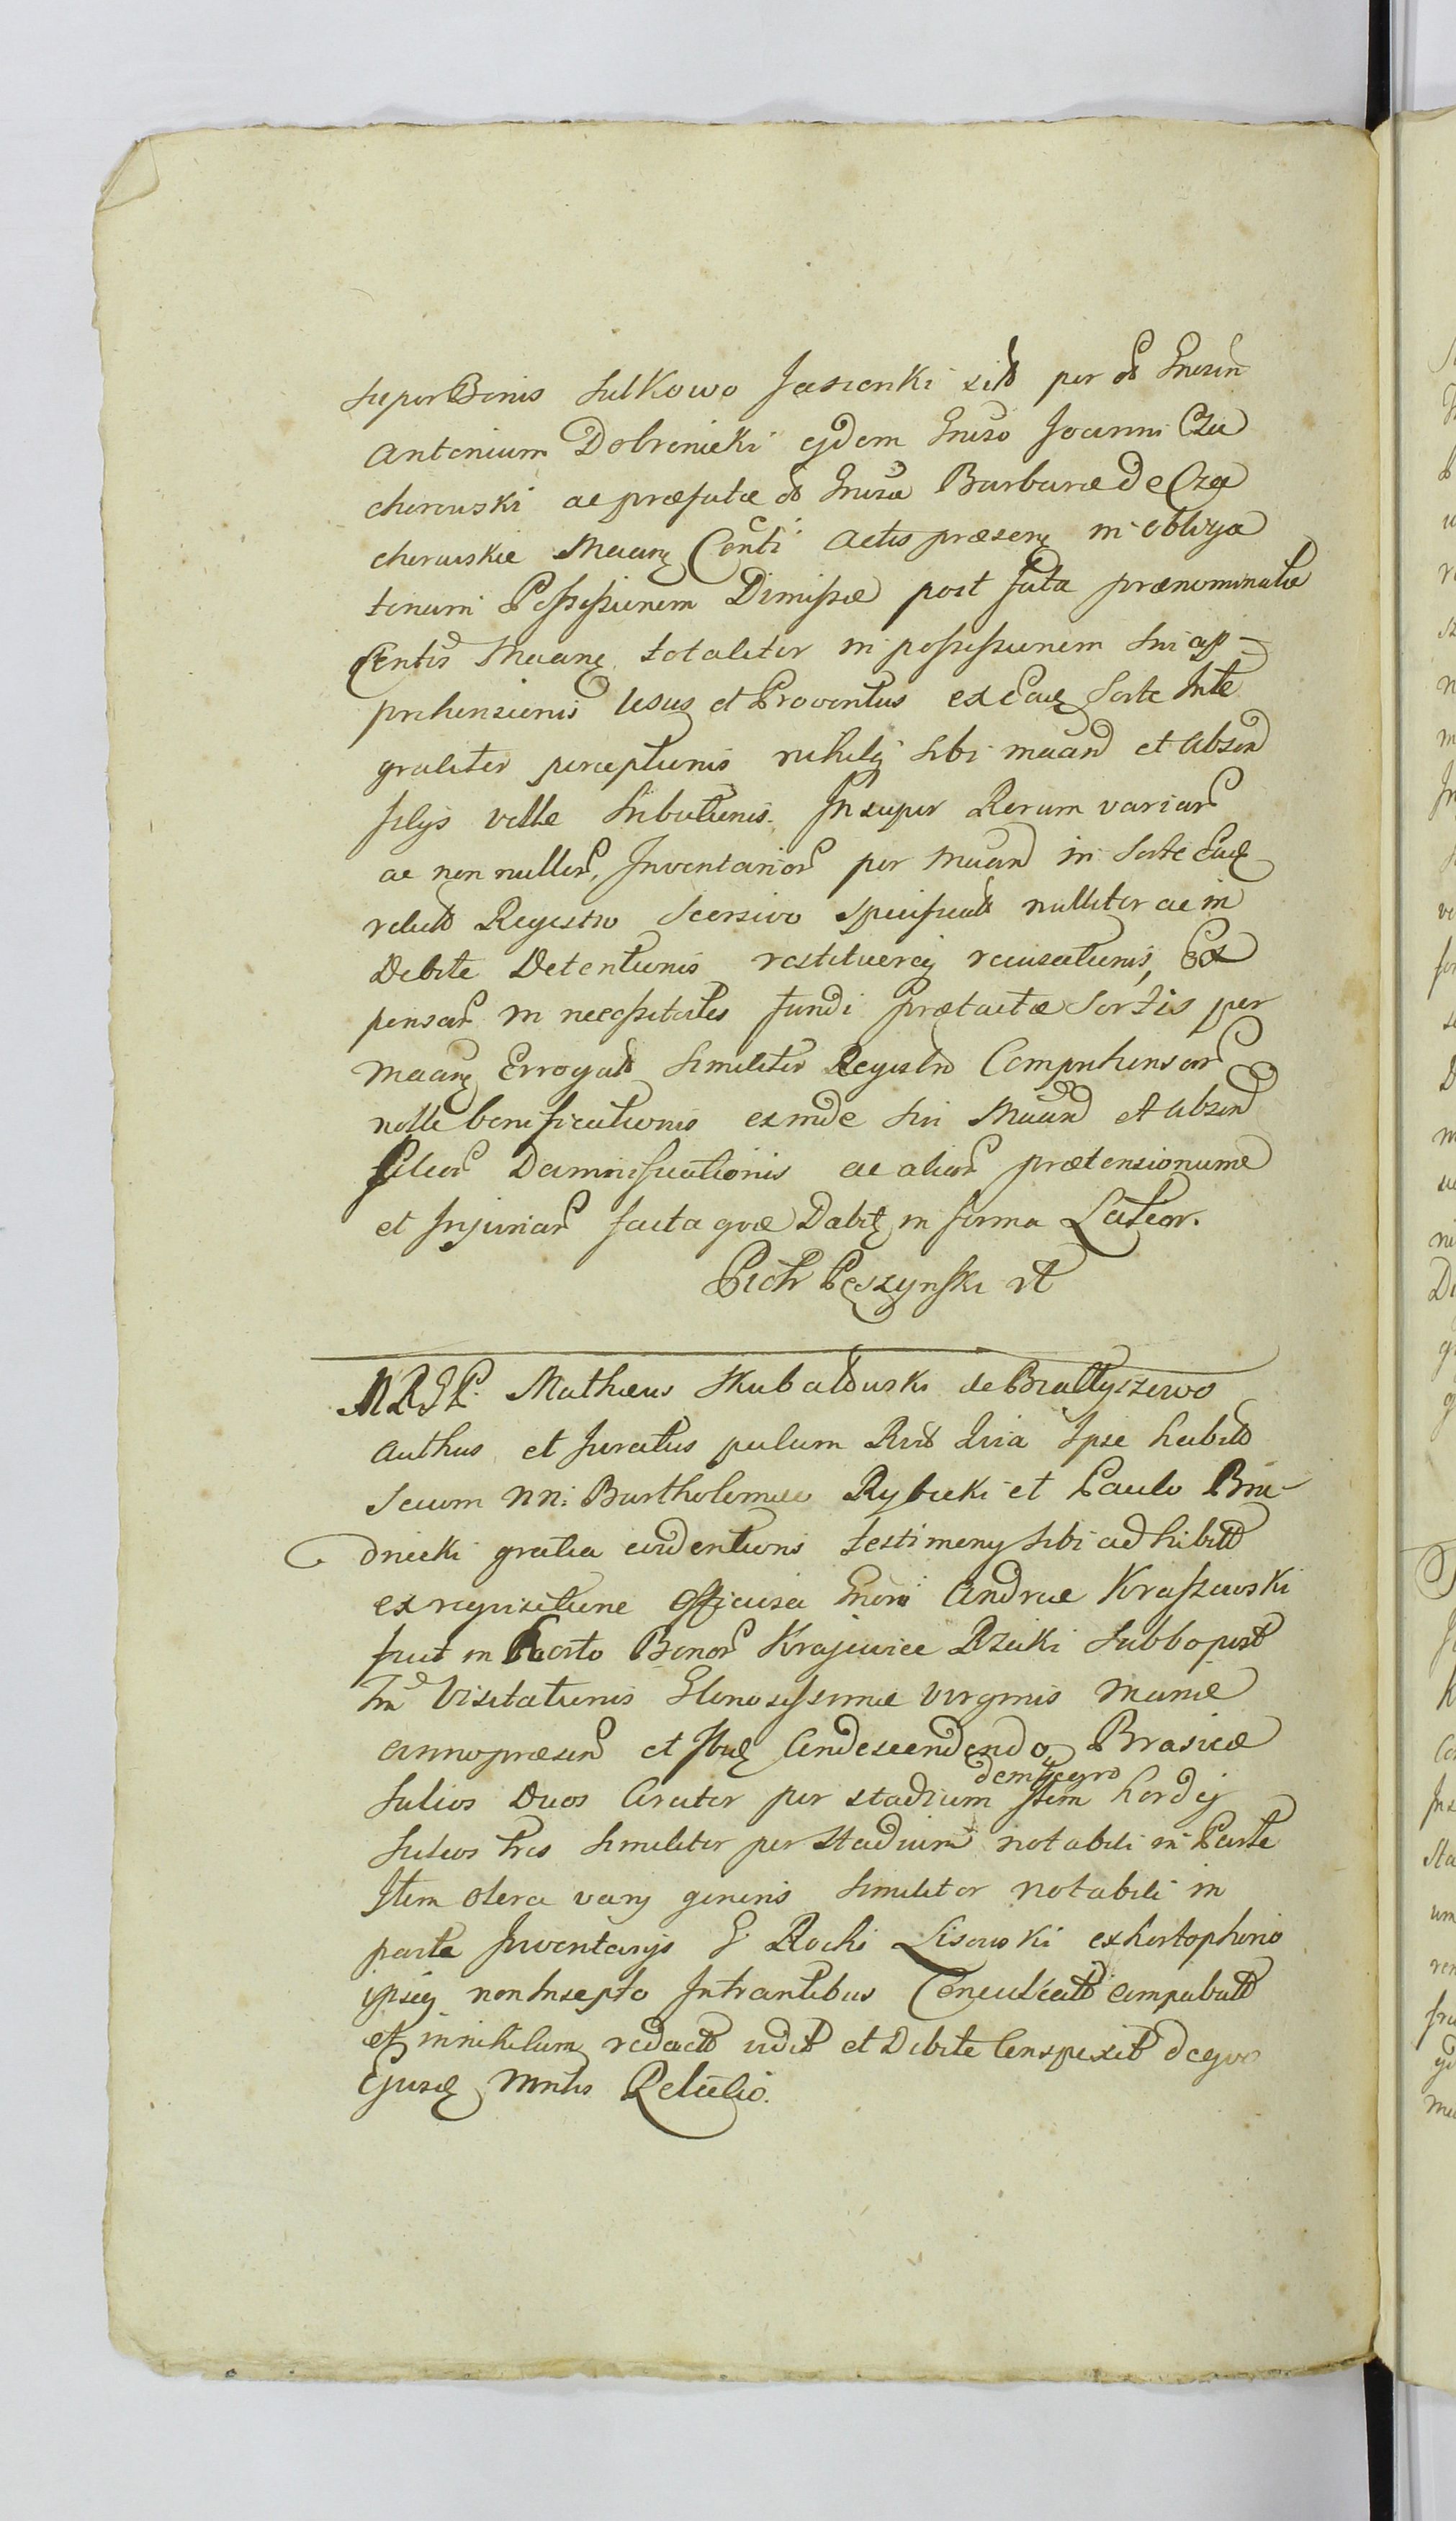 super Bonis Sulkowo Jasionki sitt per ol Gnosum
Antonium Dobrenicki ejdem Gnoso Joanni Cza
cherowski ac præfatæ ol Gnosæ Barbaræ de Cza
cherowskie Maarę Conti Actis præsenę in obliga
toriam Possessionem Dimissæ post fata prænominatæ
Contis Maarę totaliter in possessionem sui ap-
prehensionis Usus et Proventus ex Eadę Sorte Inte
graliter perceptionis nihilq sibi maand et Absen
filijs velle tributionis. Insuper Rerum variar
ac non nullor, Inventarior per Maand in Sorte Eadę
relict Regestro Scorsivo specificatt nulliter ac in
Debite Detentionis restituereq recusationis, Ex
pensar in necessitates fundi prætactæ Sortis per
Maarę Errogatt similiter Regestro Comprehensar
nolle bonificationis exinde sui Maand et Absen
filior Damnificationis ac aliar prætensionume
et Injuriar facta quæ Dabitę in forma Latior.
Piotr Pęszynski
Mathæus Skubałowski de Brattyszewo
Authus et Juratus palam Ipse habitt
secum nn: Bartholomeo Rybicki et Paulo Bru-
dnicki gratia evidentioris testimony sibi adhibitt
ex requisitione Officiosa Gnoro Andreæ Kraszewski
fuit in Horto Bonor Krajewice Rzeki Sabbo post
fm Visitationis Gloriosissimæ Virginis Mariæ
anno præsen et Ibidę Condescendendo, Brasicæ
demtegro
Sulios Duos Circiter per stadium Item hordej
Sulcos tres similiter per Stadium notabili in Parte
Item olera varij generis similiter notabili in
parte Inventarijs G Rochi Lisowski ex hortophorio
ipsiq non Insepto Intrantibus Conculcatt compabutt
et in nihilum redactt vidit et Debite Conspexit de quo
Ejusdę Mntis Relatio.